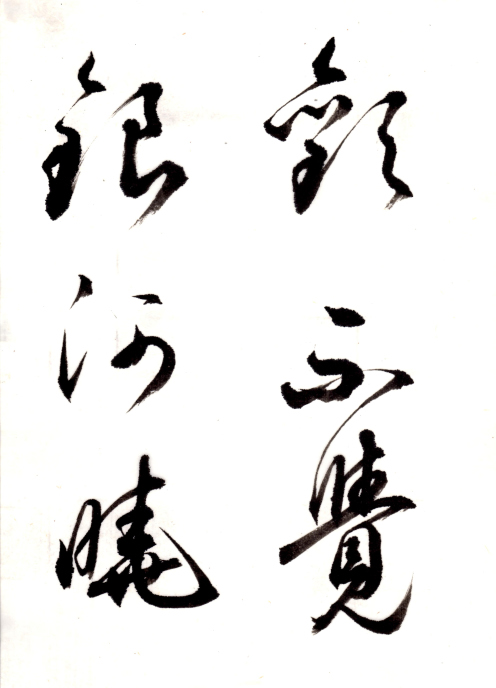 歡不覺
銀河曉